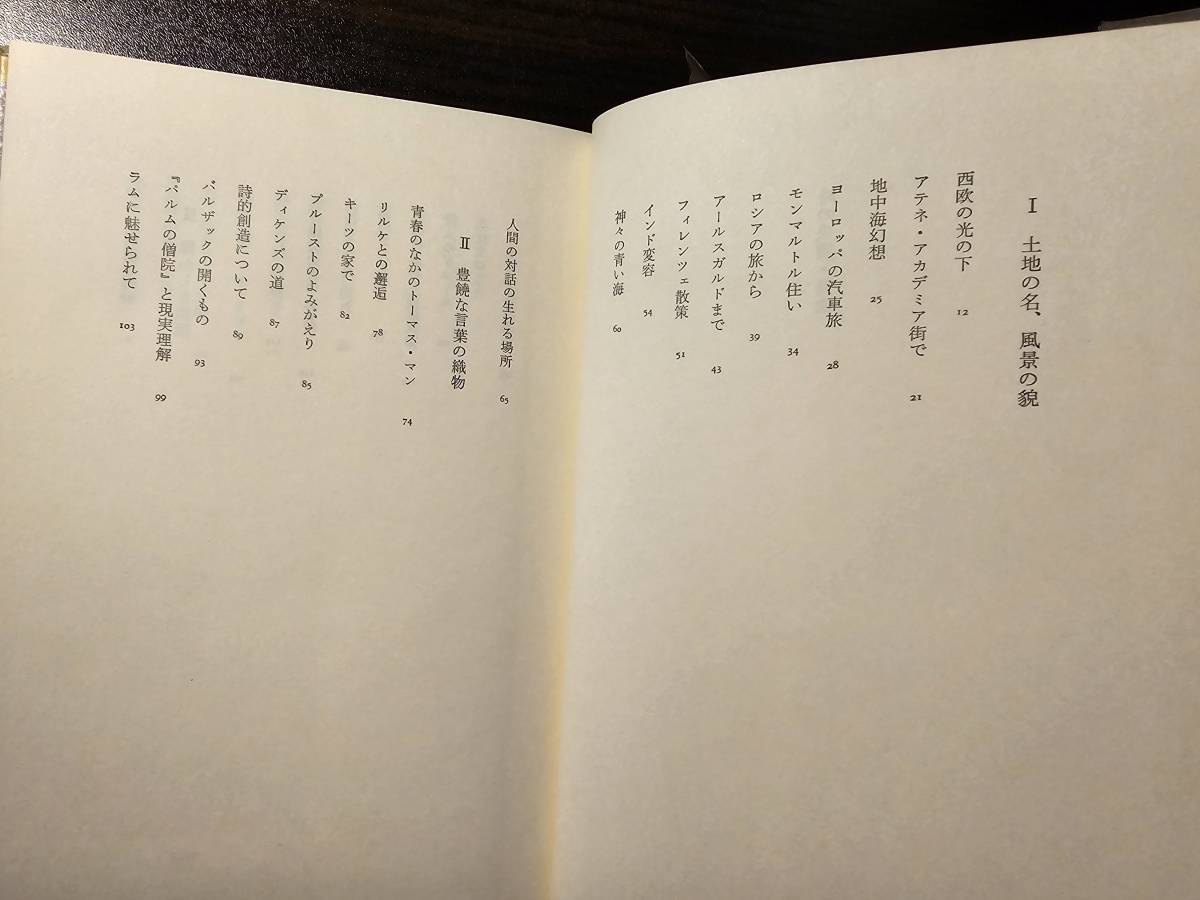 I 土地の名、風景の貌
西欧の光の下 12
アテネ・アカデミア街で 21
地中海幻想 25
ヨーロッパの汽車旅 28
モンマルトル住い 34
ロシアの旅から 39
アールスガルドまで 43
フィレンツェ散策 51
インド変容 54
神々の青い海 60
人間の対話の生れる場所 65
II 豊饒な言葉の織物
青春のなかのトーマス・マン 74
リルケとの邂逅 78
キーツの家で 82
プルーストのよみがえり 85
ディケンズの道 87
詩的創造について 89
バルザックの開くもの 93
『パルムの僧院』と現実理解 99
ラムに魅せられて 103